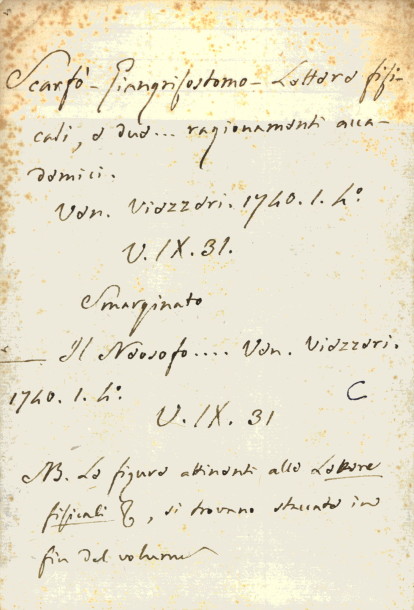 Scarfò - Giangrisostomo - Lettere fisi-
cali, e due... ragionamenti acca-
demici.
Ven. Viezzeri. 1740. 1. 4º.
V. IX. 31.
Smarginato
— Il Neosofo.... Ven. Viezzeri.
1740. 1. 4º.
C
V. IX. 31
NB. Le figure attinenti alle Lettere
fisicali &, si trovano staccate in
fin del volume